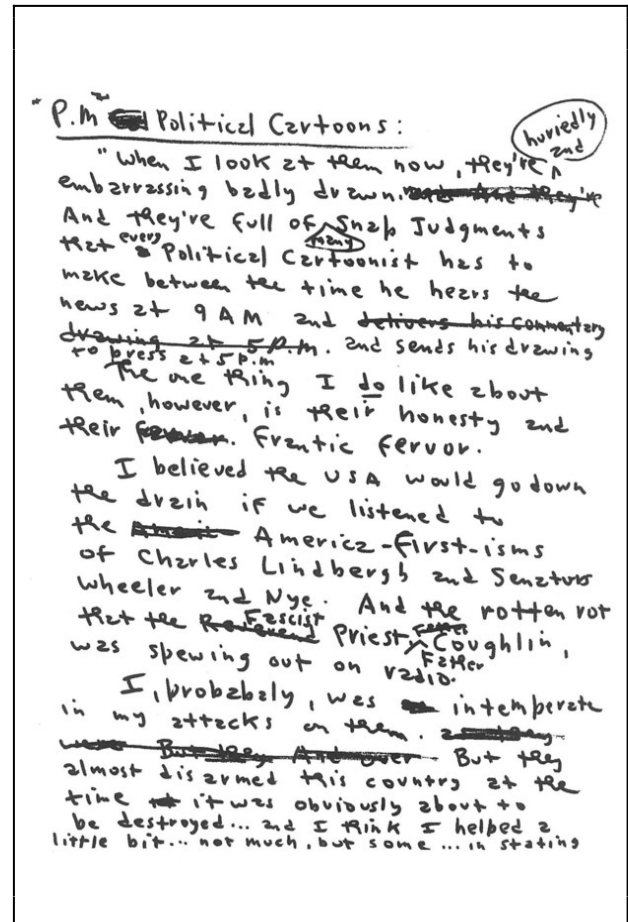 "P.M" Political Cartoons:
huriedly
and
"When I look at them now, they're
embarrassing badly drawn. and And they're
And they're full of Snap Judgments
many
that every a Political Cartoonist has to
make between the time he hears the
news at 9 AM and delivers his commentary
drawing at 5 P.M. and sends his drawing
to press at 5 P.M
The one thing I do like about
them, however, is their honesty and
their fervor. Frantic Fervor.
I believed the USA would go down
the drain if we listened to
the America-first-isms
of Charles Lindbergh and Senators
Wheeler and Nye. And the rotten rot
that the Reverend Fascist Priest Father Coughlin,
was spewing out on radio.
Father
I, probabaly, was intemperate
in my attacks on them. and they
were But they And over But they
almost disarmed this country at the
time it was obviously about to
be destroyed... and I think I helped a
little bit... not much, but some... in stating